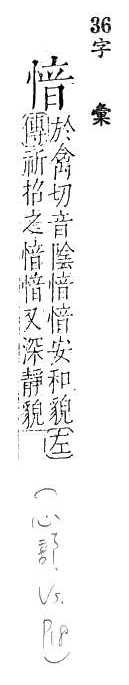 36字 彙
愔
於禽切音陰愔愔安和貌左
傳祈招之愔愔又深靜貌
(心部 Vs. P18)